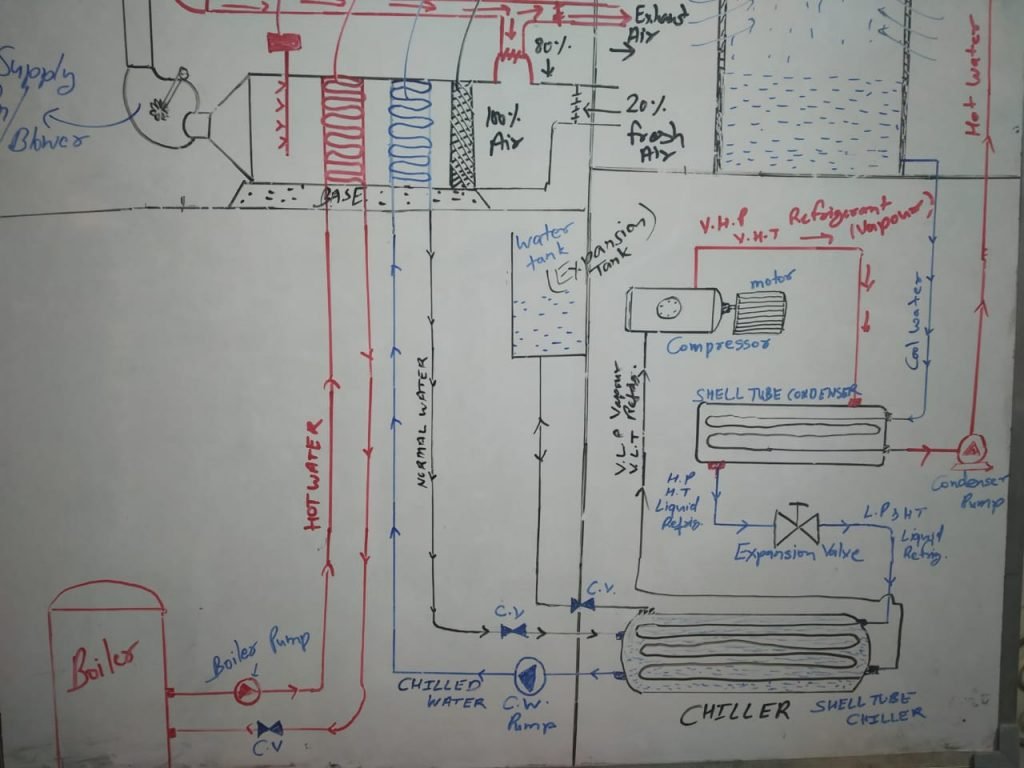 Supply
Blower
Exhaust
Air
80%
100%
Air
20%
fresh
Air
BASE
Hot Water
Water
tank
(Expansion)
Tank
V.H.P
V.H.T
Refrigerant
(Vapour)
motor
Compressor
Cool water
SHELL TUBE CONDENSER
V.L.P Vapour
V.L.T Refrig.
NERMAL WATER
HOT WATER
H.P
H.T
Liquid
Refrig.
Condenser
Pump
L.P & HT
Liquid
Refrig.
Expansion Valve
C.V.
C.V
Boiler
Boiler Pump
C.V
CHILLED
WATER
C.W.
Pump
CHILLER
SHELL TUBE
CHILLER